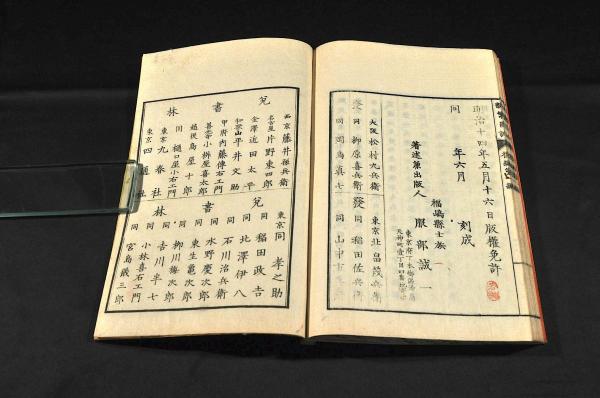 明治十四年五月十六日版權免許
同 年六月 刻成
著述兼出版人
福嶋縣士族
服部誠一
東京府下
發
大阪 松村九兵衛
同 柳原喜兵衛
同 岡島真七
發
東京 北畠茂兵衛
同 稲田佐兵衛
同 山中市兵衛
兌
書
林
西京 藤井孫兵衛
名古屋 片野東四郎
金澤 近田太平
和歌山 平井文助
甲府 内藤傳右エ門
小林喜右エ門
越後 鳥屋十郎
東京 九春社
東京 四通社
兌
書
林
東京 同孝之助
同 稲田政吉
同 北澤伊八
同 石川治兵衛
同 水野慶次郎
同 東生亀次郎
同 柳川梅次郎
同 吉川半七
同 小林喜右エ門
同 宮島儀三郎